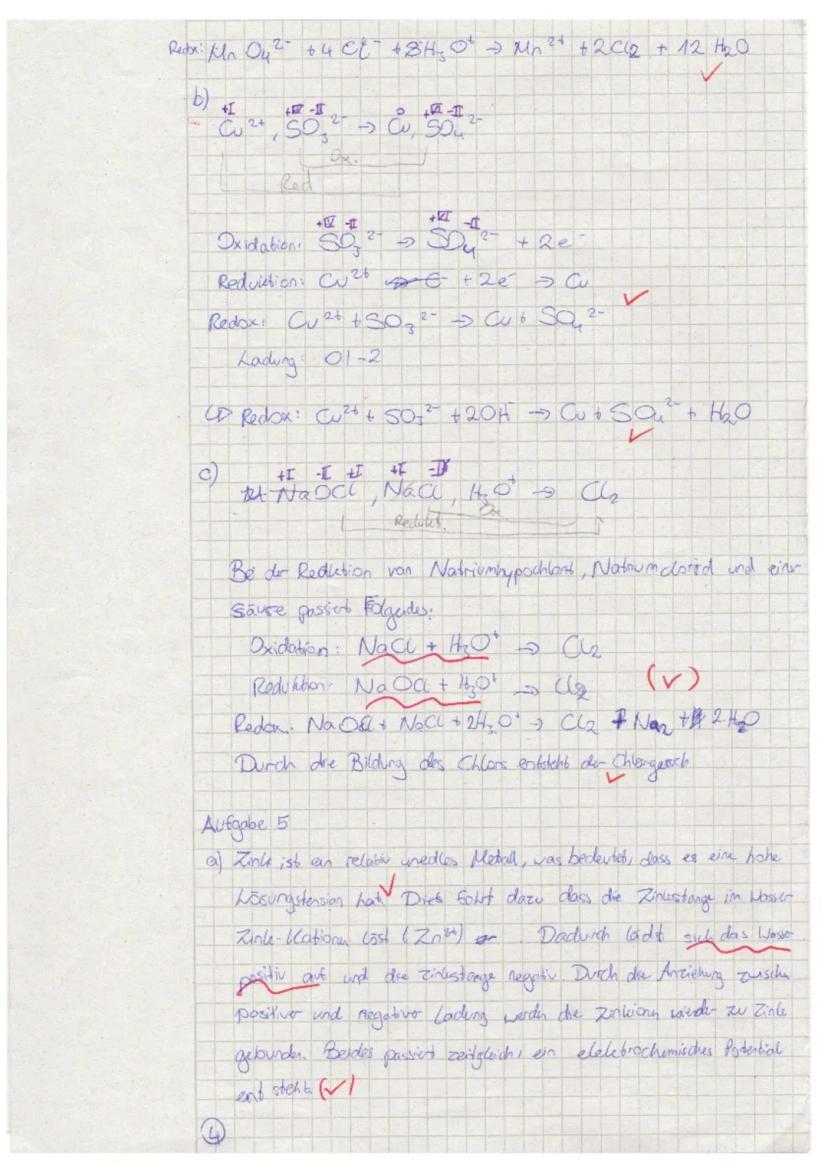 Redox: MnO₄²⁻ + 4 Cl⁻ + 8H₃O⁺ → Mn²⁺ + 2Cl₂ + 12 H₂O
b)
+I +IV -II 0 +VI -II
Cu²⁺, SO₃²⁻ → Cu, SO₄²⁻
Ox.
Red
+IV -II +VI -II
Oxidation: SO₃²⁻ → SO₄²⁻ + 2e⁻
Reduktion: Cu²⁺ + 2e⁻ → Cu
Redox: Cu²⁺ + SO₃²⁻ → Cu + SO₄²⁻
Ladung: 0|-2
Redox: Cu²⁺ + SO₃²⁻ + 2OH⁻ → Cu + SO₄²⁻ + H₂O
c) +I -II +I +I
NaOCl, NaCl, H₃O⁺ → Cl₂
Ox
Redukt.
Bei der Reduktion von Natriumhypochlorit, Natriumclorid und einer
Säure passiert Folgendes:
Oxidation: NaCl + H₃O⁺ → Cl₂
Reduktion: NaOCl + H₃O⁺ → Cl₂ (✓)
Redox: NaOCl + NaCl + 2H₃O⁺ → Cl₂ + Na₂ + 2 H₂O
Durch die Bildung des Chlors entsteht der Chlorgeruch
Aufgabe 5
a) Zink ist ein relativ unedles Metall, was bedeutet, dass es eine hohe
Lösungstension hat. Dies führt dazu dass die Zinkstange im Wasser
Zink-Kationen löst (Zn²⁺) Dadurch lädt sich das Wasser
positiv auf und die Zinkstange negativ. Durch die Anziehung zwischen
positiver und negativer Ladung werden die Zinkionen wieder zu Zink
gebunden. Beides passiert zeitgleich, ein elektrochemisches Potential
entsteht. (✓)
4